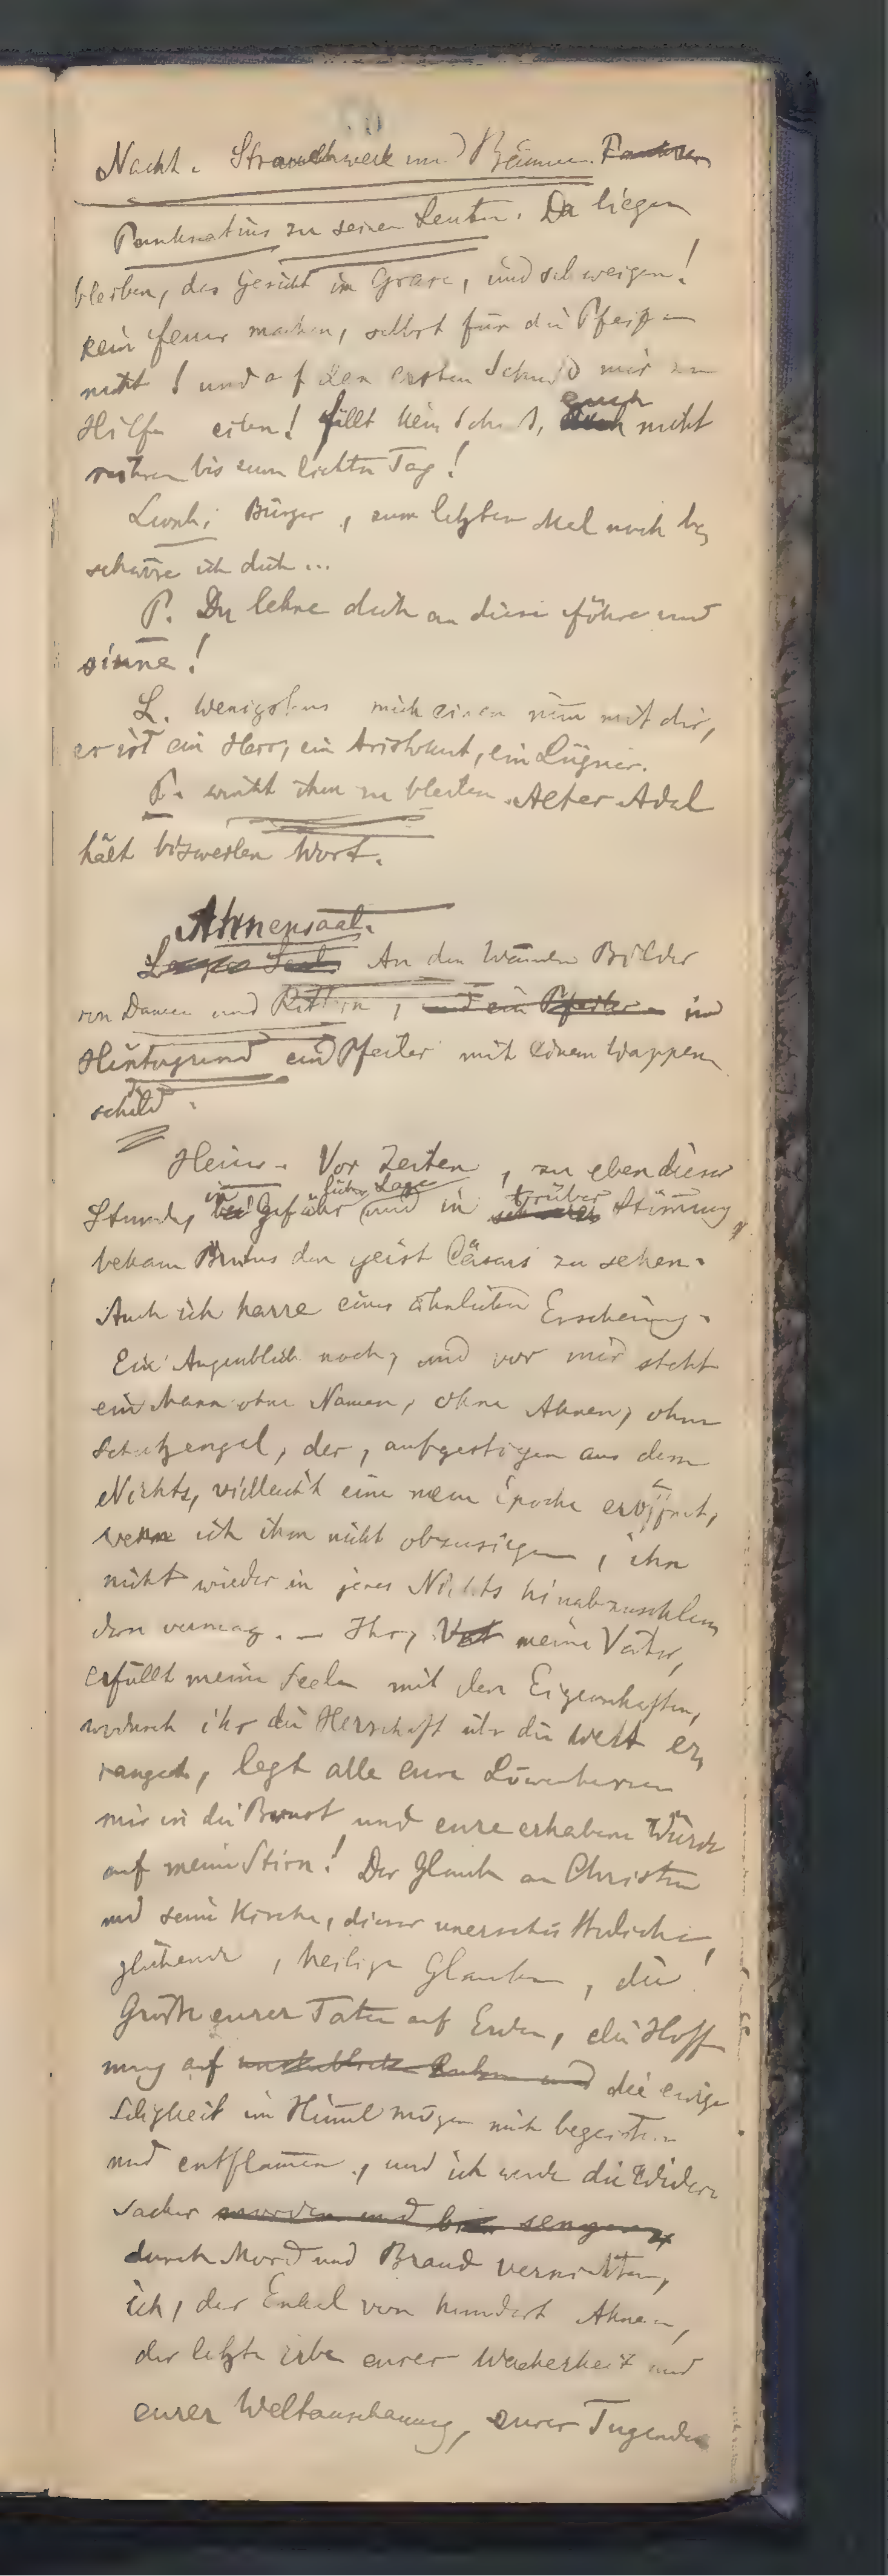 Nacht. Strauchwerk und Bäume.
Pankratius zu seinen Leuten. Da liegen
bleiben, das Gesicht im Grase, und schweigen!
kein Feuer machen, selbst für die Pfeifen
nicht! und auf den ersten Schuß mir zu
Hilfe eilen! fällt kein Schuß, euch nicht
rühren bis zum lichten Tag!
Leonh. Bürger, zum letzten Mal noch be-
schwöre ich dich ...
P. Du lehne dich an diese Föhre und
sinne!
L. Wenigstens mich einen nimm mit dir,
er ist ein Herr, ein Aristokrat, ein Lügner.
P. winkt ihm zu bleiben. Alter Adel
hält bisweilen Wort.
Ahnensaal.
An den Wänden Bilder
von Damen und Rittern, im
Hintergrund ein Pfeiler mit einem Wappen
schild.
Heinr. Vor Zeiten, zu eben dieser
Stunde, in gefährlicher Lage und in trüber Stimmung,
bekam Brutus den Geist Cäsars zu sehen.
Auch ich harre einer ähnlichen Erscheinung.
Ein Augenblick noch, und vor mir steht
ein Mann ohne Namen, ohne Ahnen, ohne
Schutzengel, der, aufgestiegen aus dem
Nichts, vielleicht eine neue Epoche eröffnet,
wenn ich ihm nicht obzusiegen, ihn
nicht wieder in jenes Nichts hinabzuschleu-
dern vermag. – Ihr, meine Väter,
erfüllt meine Seele mit den Eigenschaften,
wodurch ihr die Herrschaft über die Welt er-
ranget, legt alle eure Löwenherzen
mir in die Brust und eure erhabene Würde
auf meine Stirn! Der Glaube an Christum
und seine Kirche, dieser unerschütterliche,
glühende, heilige Glauben, die
Größe eurer Taten auf Erden, die Hoff-
nung auf die ewige
Seligkeit im Himmel mögen mich begeistern
und entflammen, und ich werde die Wider-
sacher
durch Mord und Brand vernichten,
ich, der Enkel von hundert Ahnen,
der letzte Erbe eurer Wackerkeit und
eurer Weltanschauung, eurer Tugenden